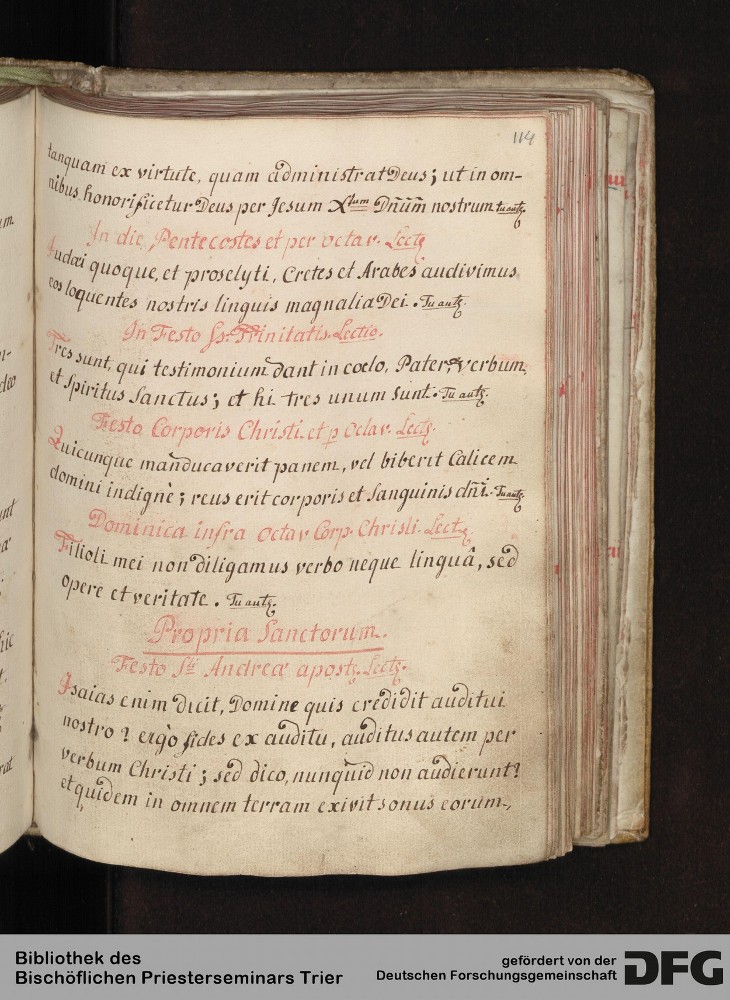 114
tanquam ex virtute, quam administrat Deus; ut in om-
nibus honorificetur Deus per Jesum Xtum Dn̄um̄ nostrum tu autꝫ.
In die Pentecostes et per octav. Lectꝫ
Judæi quoque, et proselyti, Cretes et Arabes audivimus
eos loquentes nostris linguis magnalia Dei. Tu autꝫ.
In Festo Ss. Trinitatis Lectio.
Tres sunt, qui testimonium dant in cœlo, Pater, Verbum,
et Spiritus Sanctus; et hi tres unum sunt. Tu autꝫ.
Festo Corporis Christi et p Octav. Lectꝫ.
Quicunque manducaverit panem, vel biberit Calicem
domini indignè; reus erit corporis et sanguinis dn̄i. Tu autꝫ
Dominica infra Octav Corp. Christi. Lectꝫ
Filioli mei non diligamus verbo neque linguâ, sed
opere et veritate. Tu autꝫ.
Propria Sanctorum.
Festo Sti Andreæ apostꝫ. Lectꝫ.
Isaias enim dicit, Domine quis credidit auditui
nostro? ergò fides ex auditu, auditus autem per
verbum Christi; sed dico, nunquid non audierunt?
et quidem in omnem terram exivit sonus eorum,
Bibliothek des
Bischöflichen Priesterseminars Trier
gefördert von der
Deutschen Forschungsgemeinschaft
DFG